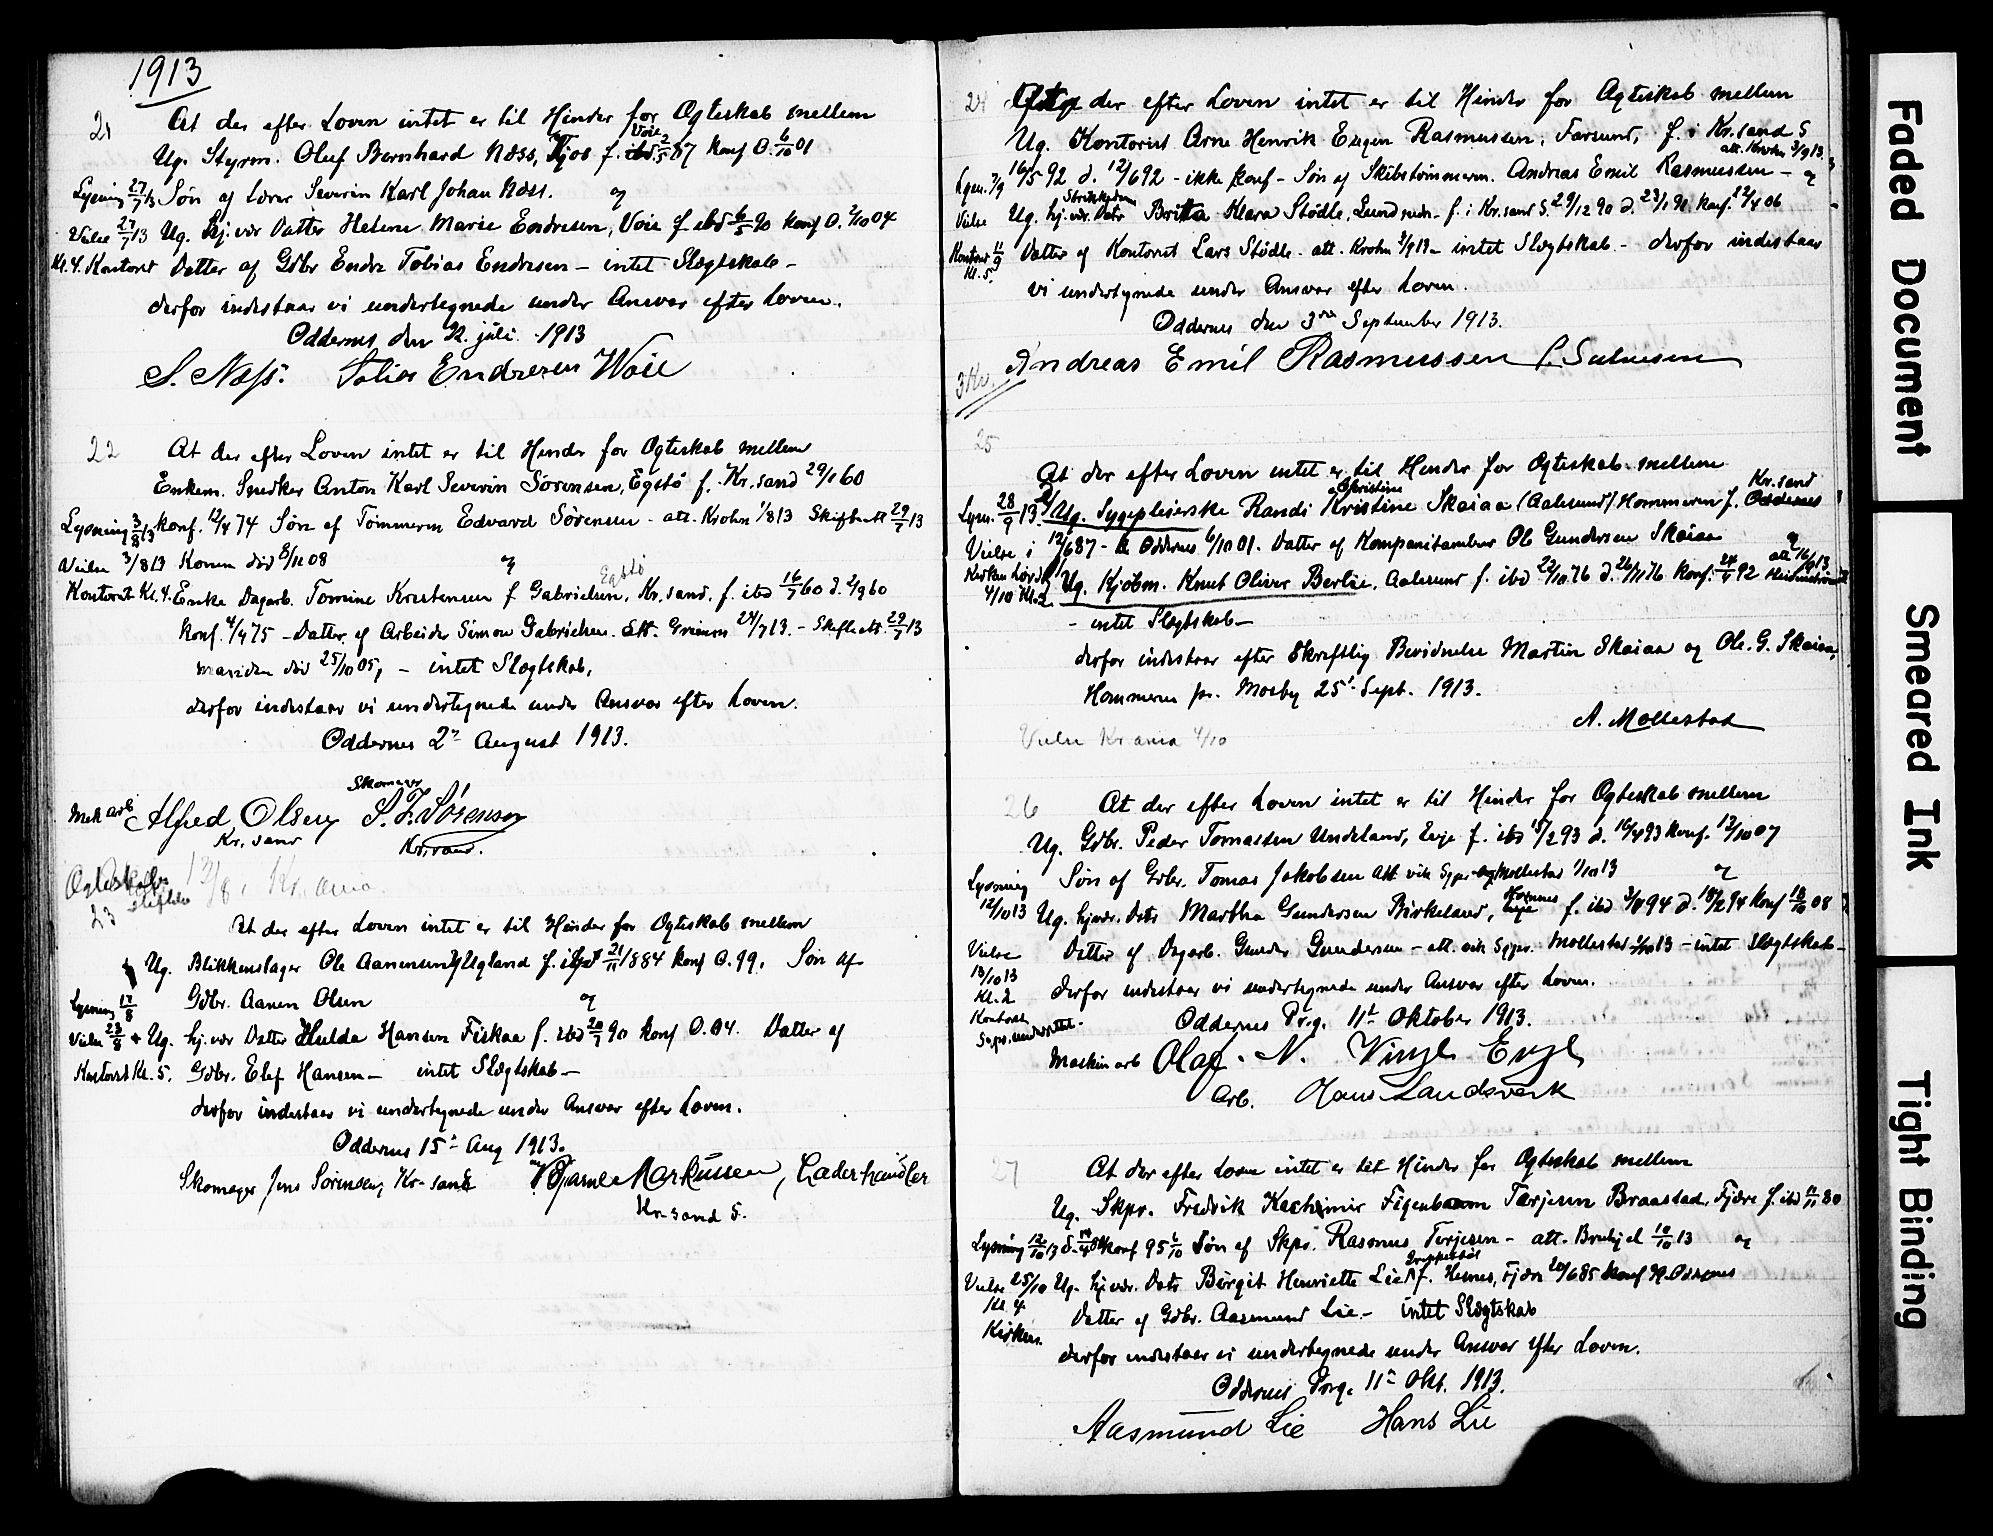 1913
21 At der efter Loven intet er til Hinder for Ogteskab mellem
Voie
Ug. Styrm. Oluf Bernhard Næss, f. 2/5 87 konf O. 6/10 01
Lysning 27/7 13 Søn af Lærer Severin Karl Johan Næss. og
Vielse 27/7 13 Ug. hj. vær Datter Helene Marie Endresen, Voie f ibd 6/5 90 konf O. 2/10 04
Kl. 4. Kontoret Datter af Gdbr Endre Tobias Endresen – intet Slægtskab –
derfor indestaar vi undertegnede under Ansvar efter Loven.
Oddernes den 22. juli 1913
S. Næss. Tobias Endresen Voie
22 At der efter Loven intet er til Hinder for Ogteskab mellem
Enkem. Snedker Anton Karl Severin Sørensen, Egstø f. Kr.sand 29/1 60
Lysning 3/8 13 konf. 12/4 74 Søn af Tømmerm Edvard Sørensen – att. Krohn 1/8 13 Skifteatt 29/7 13
Vielse 3/8 13 Konen død 8/11 08 og
Egstø
Kontoret Kl. 4. Enke Dagarb. Tomine Kristensen f Gabrielsen, Kr. sand. f. ibd 16/7 60 d. 2/9 60
konf. 4/4 75 – Datter af Arbeider Simon Gabrielsen. Att. 24/7 13. – Skifteatt. 29/7 13
manden død 25/10 05, – intet Slægtskab,
derfor indestaar vi undertegnede under Ansvar efter Loven.
Oddernes 2n August 1913.
Skomager
Mek arb Alfred Olsen S. F. Sørensen
Kr. sand Kr.sand.
13/8. Kr.ania
23 At der efter Loven intet er til Hinder for Ogteskab mellem
Ug. Blikkenslager Ole Aanensen Ugland f. 21/11 1884 konf O. 99. Søn af
Lysning 17/8 Gdbr. Aanen Olsen og
Vielse 23/8 Ug. hj. vær Datter Hulda Hansen Fiskaa f. ibd 20/7 90 konf O. 04. Datter af
Kontoret Kl. 5. Gdbr. Elef Hansen – intet Slægtskab –
derfor indestaar vi undertegnede under Ansvar efter Loven.
Oddernes 15n Aug 1913.
Skomager Jens Sørensen, Kr-sand Bjarne Markussen, Læderhandler
Kr-sand S.
24 der efter Loven intet er til Hinder for Agteskab mellem
Ug. Kontorist Arne Henrik Eugen Rasmussen, Farsund, f. i Kr.sand S
att. Krohn 3/9 13
Lysn. 7/9 16/5 92 d. 12/6 92 – ikke konf – Søn af Skibstømmerm. Andreas Emil Rasmussen – og
Vielse Ug. hj. vær. Datr Britta Klara Stødle, Lund f. i Kr. sand S. 29/12 90 d. 23/1 91 konf. 22/4 06
Kontoret 11/9 Datter af Kontorist Lars Stødle. att. Krohn 3/9 13 – intet Slægtskab – derfor indestaar
Kl. 5. vi undertegnede under Ansvar efter Loven.
Oddernes den 3die September 1913.
3 Kr. Andreas Emil Rasmussen
25
At der efter Loven intet er til Hinder for Ogteskab mellem
Christine Kr. sand
Lysn. 28/9 13. Ug. Sygepleierske Randi Kristine Skaiaa (Aalesund) Hommeren f. Oddernes
Vielse i 12/6 87 – Oddernes 6/10 01. Datter af Ole Gundersen Skaiaa og
4/10 Kl. 2 Ug. Kjøbm. Knut Oliver Berlie, Aalesund f. ibd 22/10 76 d. 26/11 76 konf. 24/4 92
– intet Slægtskab –
derfor indestaar efter Skriftlig Bevidnelse Martin Skaiaa og Ole. G. Skaiaa,
Hommeren pr. Mosby 25' Sept. 1913.
A. Mollestad
Vielse Kr.ania 4/10
26 At der efter Loven intet er til Hinder for Ogteskab mellem
Ug. Gdbr. Peder Tomassen Undeland, Evje f. ibd 15/2 93 d. 16/4 93 konf. 13/10 07
Lysning Søn af Gdbr. Tomas Jakobsen Mollestad 1/10 13 og
12/10 13 Ug. hj.vær. Datr Martha Gundersen Birkeland, Hornnes f. ibd d. 18/2 94 konf 18/10 08
Vielse Datter af Dagarb. Gunder Gundersen – att. Mollestad 13 – intet Slægtskab –
13/10 13
Kl. 2 derfor indestaar vi undertegnede under Ansvar efter Loven.
Kontoret Oddernes Prg. 11t Oktober 1913.
Maskinarb Olaf N. Vinje
Arb. Hans Landsverk
27 At der efter Loven intet er til Hinder for Ogteskab mellem
Ug. Skpr. Fredrik Figenbaum Terjesen Braastad, Fjære f. ibd 80
Lysning 12/10 13 konf 95 Søn af Skpr. Rasmus Terjesen – att. 10/10 13 og
Vielse 25/10 Ug. hj.vær. Datr Birgit Henriette Lie f. Hesnes, Fjære 20/6 85 konf
Kl. 4 Datter af Gdbr. Aasmund Lie – intet Slægtskab
Kirken. derfor indestaar vi undertegnede under Ansvar efter Loven.
Oddernes Prg. 11n Okt. 1913.
Aasmund Lie Hans Lie
Faded Document
Smeared Ink
Tight Binding